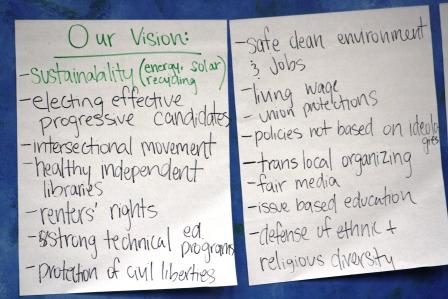 Our Vision:
-sustainability (energy, solar)
recycling
-electing effective
progressive candidates
-intersectional movement
-healthy independent
libraries
-renters' rights
-strong technical ed
programs
-protection of civil liberties
-safe clean environment
& jobs
-living wage
-union protections
-policies not based on ideolo
gies
-trans local organizing
-fair media
-issue based education
-defense of ethnic +
religious diversity